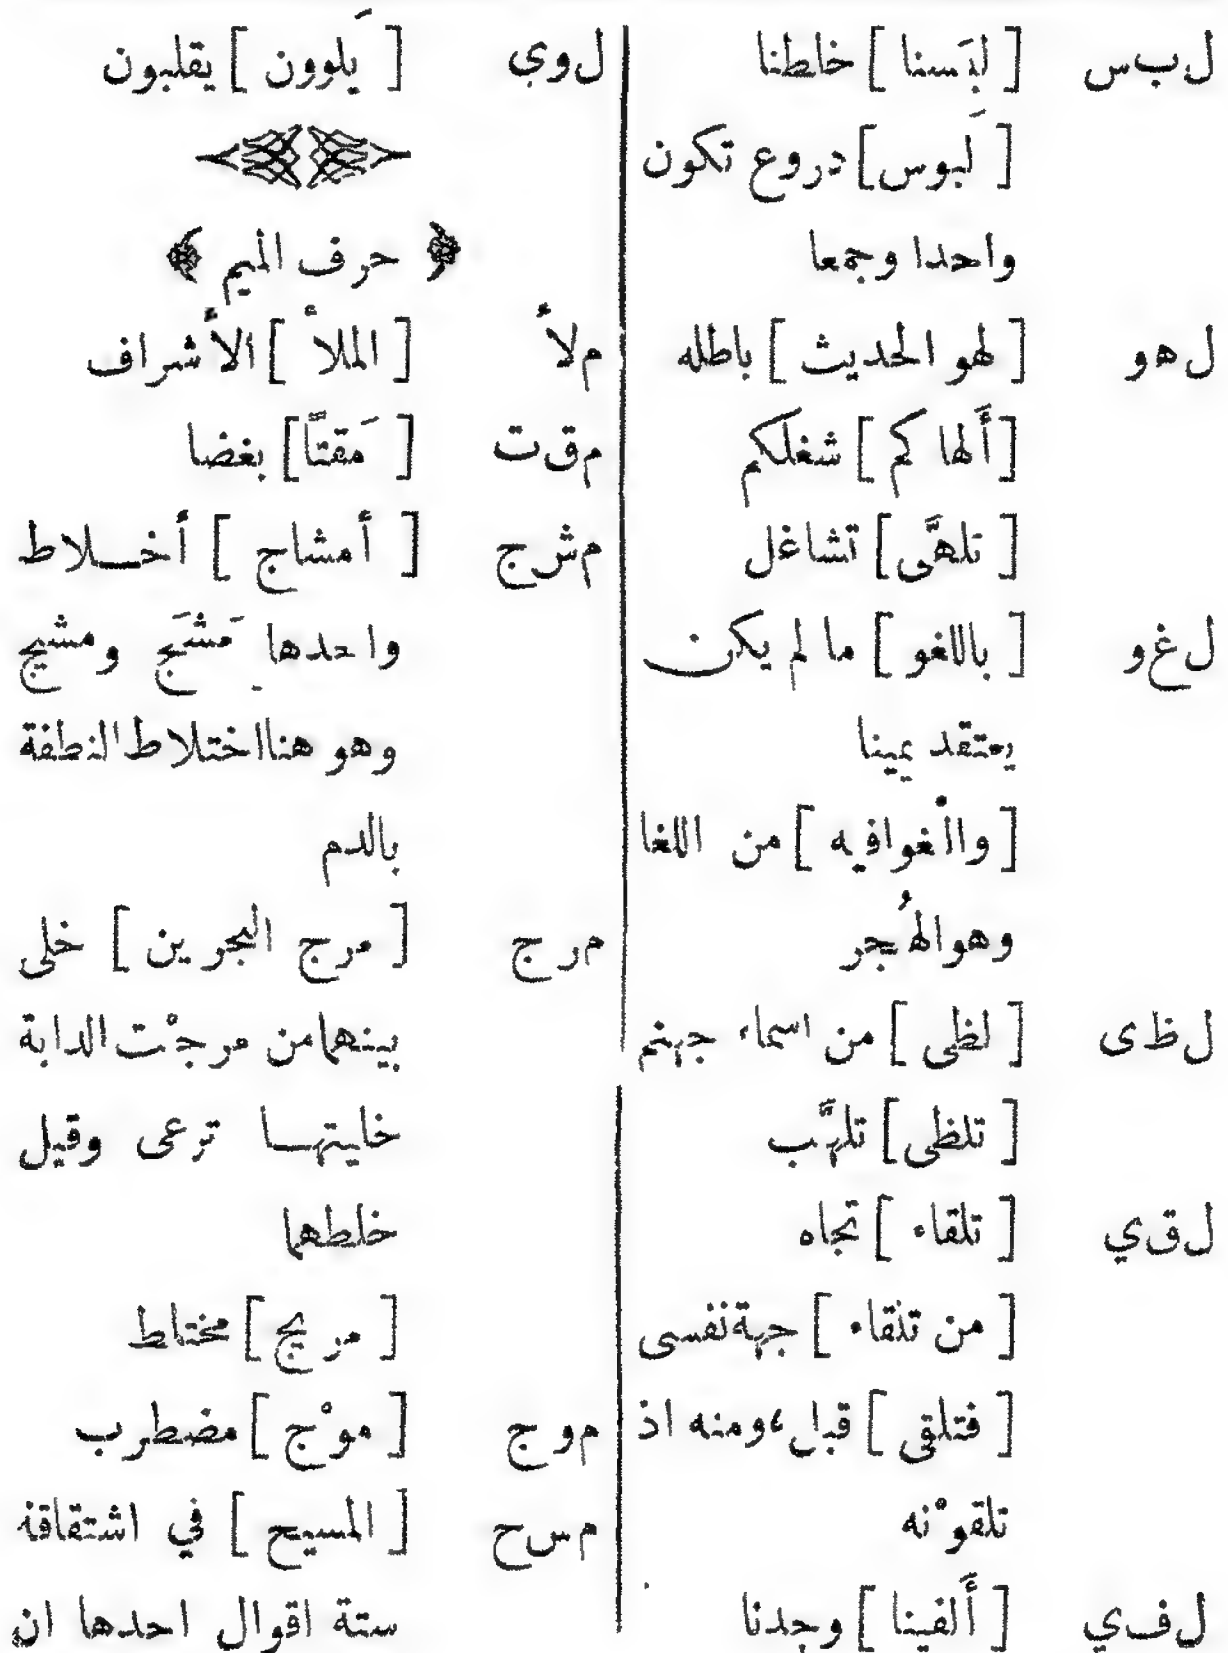 ل ب س [ لبَسنا ] خلطنا
[ لَبوس ] دروع تكون
واحدا وجمعا
ل ه و [ لهو الحديث ] باطله
[ أَلها كم ] شغلكم
[ تلهَّى ] تشاغل
ل غ و [ باللغو ] ما لم يكن
يعتقد يمينا
[ والْغوافيه ] من اللغا
وهوالهُجر
ل ظ ى [ لظى ] من اسماء جهنم
[ تلظى ] تلهَّب
ل ق ي [ تلقاء ] تجاه
[ من تلقاء ] جهة نفسى
[ فتلقى ] قبل، ومنه اذ
تلقوْنه
ل ف ي [ أَلفينا ] وجدنا
ل و ى [ يَلوون ] يقلبون
﴿ حرف الميم ﴾
م ل أ [ الملأ ] الأشراف
م ق ت [ مَقتًا ] بغضا
م ش ج [ أمشاج ] أخــلاط
واحدها مَشَج ومشيج
وهو هنا اختلاط النطفة
بالدم
م ر ج [ مرج البحرين ] خلى
بينهما من مرجْت الدابة
خليتهــا ترعى وقيل
خلطهما
[ مر يج ] مختلط
م و ج [ موْج ] مضطرب
م س ح [ المسيح ] في اشتقاقه
ستة اقوال احدها ان